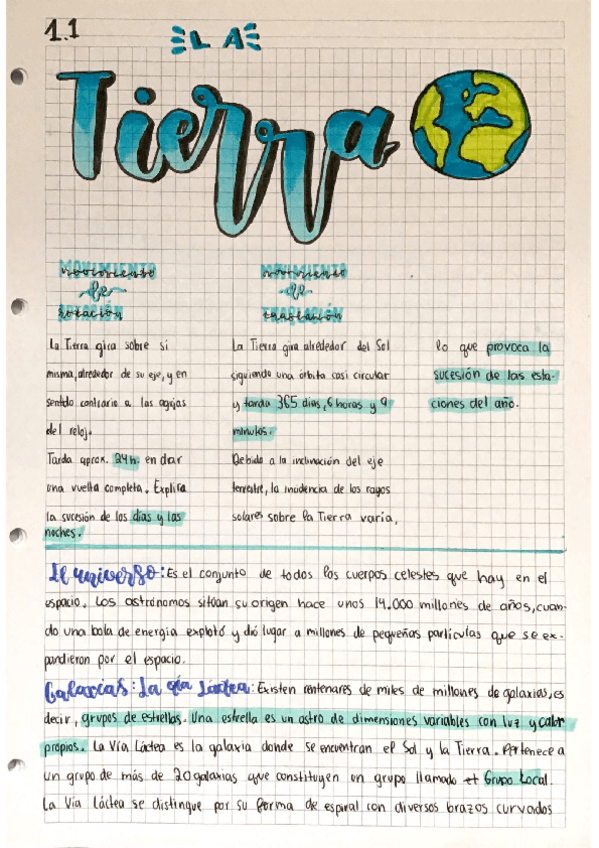 1.1
LA
Tierra
MOVIMIENTO
de
ROTACIÓN
La Tierra gira sobre si
misma, alrededor de su eje, y en
sentido contrario a las agujas
del reloj.
Tarda aprox. 24h. en dar
una vuelta completa. Explica
la sucesión de los días y las
noches.
MOVIMIENTO
de
TRASLACIÓN
La Tierra gira alrededor del Sol
siguiendo una órbita casi circular
y tarda 365 dias, 6 horas y 9
minutos.
Debido a la inclinación del eje
terrestre, la incidencia de los rayos
solares sobre la Tierra varia,
lo que provoca la
sucesión de las esta-
ciones del año.
El universo: Es el conjunto de todos los cuerpos celestes que hay en el
espacio. Los astrónomos sitúan su origen hace unos 14.000 millones de años, cuan-
do una bola de energia explotó y dió lugar a millones de pequeñas particulas que se ex-
pandieron por el espacio.
Galaxias: La Vía Láctea: Existen centenares de miles de millones de galaxias, es
decir, grupos de estrellas. Una estrella es un astro de dimensiones variables con luz y calor
propios. La Vía Láctea es la galaxia donde se encuentran el Sol y la Tierra. Pertenece a
un grupo de más de 20 galaxias que constituyen un grupo llamado Grupo Local.
La Vía Láctea se distingue por su forma de espiral con diversos brazos curvados